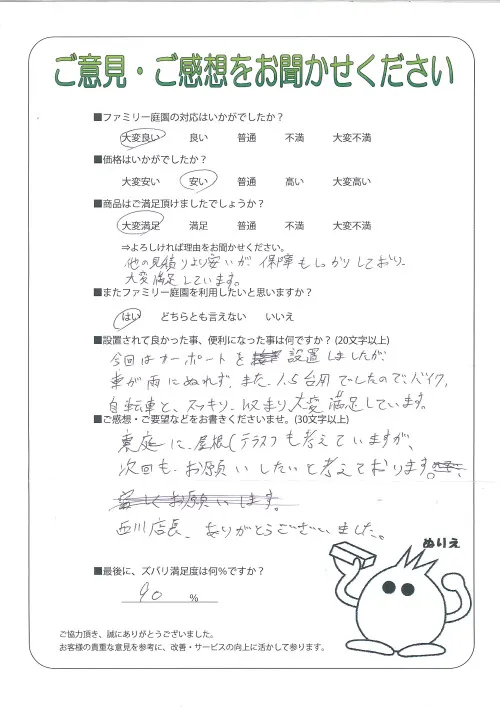 ご意見・ご感想をお聞かせください
■ファミリー庭園の対応はいかがでしたか？
大変良い 良い 普通 不満 大変不満
■価格はいかがでしたか？
大変安い 安い 普通 高い 大変高い
■商品はご満足頂けましたでしょうか？
大変満足 満足 普通 不満 大変不満
⇒よろしければ理由をお聞かせください。
他の見積りより安いが、保障もしっかりしており、
大変満足しています。
■またファミリー庭園を利用したいと思いますか？
はい どちらとも言えない いいえ
■設置されて良かった事、便利になった事は何ですか？(20文字以上)
今回はカーポートを 設置しましたが、
車が雨にぬれず、また、1.5台用でしたので、バイク、
自転車と、スッキリ収まり大変満足しています。
■ご感想・ご要望などをお書きくださいませ。(30文字以上)
裏庭に、屋根(テラス)も考えていますが、
次回も、お願いしたいと考えております。
宜しくお願いします。
西川店長、ありがとうございました。
ぬりえ
■最後に、ズバリ満足度は何％ですか？
90 ％
ご協力頂き、誠にありがとうございました。
お客様の貴重な意見を参考に、改善・サービスの向上に活かして参ります。